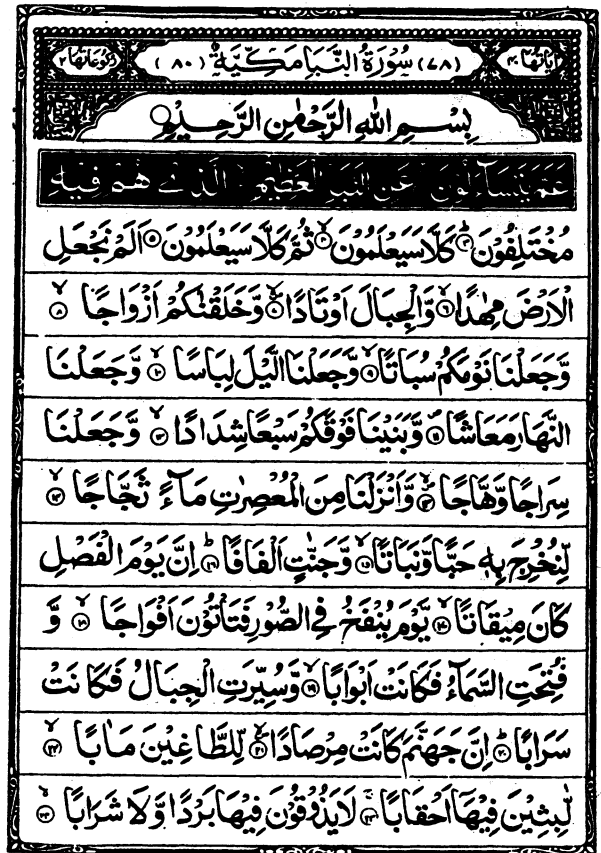 اٰيَاتُهَا ٤٠ (٧٨) سُوْرَةُ النَّبَاِ مَكِّيَّةٌ (٨٠) رُكُوْعَاتُهَا ٢
بِسْمِ اللّٰهِ الرَّحْمٰنِ الرَّحِيْمِ
عَمَّ يَتَسَآءَلُوْنَ ۚ عَنِ النَّبَاِ الْعَظِيْمِ ۙ الَّذِيْ هُمْ فِيْهِ
مُخْتَلِفُوْنَ ؕ۳ كَلَّا سَيَعْلَمُوْنَ ۙ۴ ثُمَّ كَلَّا سَيَعْلَمُوْنَ ۵ اَلَمْ نَجْعَلِ
الْاَرْضَ مِهٰدًا ۙ۶ وَّالْجِبَالَ اَوْتَادًا ۪ۙ۷ وَّخَلَقْنٰكُمْ اَزْوَاجًا ۙ۸
وَّجَعَلْنَا نَوْمَكُمْ سُبَاتًا ۙ۹ وَّجَعَلْنَا الَّيْلَ لِبَاسًا ۙ۱۰ وَّجَعَلْنَا
النَّهَارَ مَعَاشًا ۪۱۱ وَّبَنَيْنَا فَوْقَكُمْ سَبْعًا شِدَادًا ۙ۱۲ وَّجَعَلْنَا
سِرَاجًا وَّهَّاجًا ۪ۙ۱۳ وَّاَنْزَلْنَا مِنَ الْمُعْصِرٰتِ مَآءً ثَجَّاجًا ۙ۱۴
لِّنُخْرِجَ بِهٖ حَبًّا وَّنَبَاتًا ۙ۱۵ وَّجَنّٰتٍ اَلْفَافًا ؕ۱۶ اِنَّ يَوْمَ الْفَصْلِ
كَانَ مِيْقَاتًا ۙ۱۷ يَّوْمَ يُنْفَخُ فِي الصُّوْرِ فَتَاْتُوْنَ اَفْوَاجًا ۙ۱۸ وَّ
فُتِحَتِ السَّمَآءُ فَكَانَتْ اَبْوَابًا ۙ۱۹ وَّسُيِّرَتِ الْجِبَالُ فَكَانَتْ
سَرَابًا ؕ۲۰ اِنَّ جَهَنَّمَ كَانَتْ مِرْصَادًا ۪ۙ۲۱ لِّلطَّاغِيْنَ مَاٰبًا ۙ۲۲
لّٰبِثِيْنَ فِيْهَاۤ اَحْقَابًا ۚ۲۳ لَا يَذُوْقُوْنَ فِيْهَا بَرْدًا وَّلَا شَرَابًا ۙ۲۴